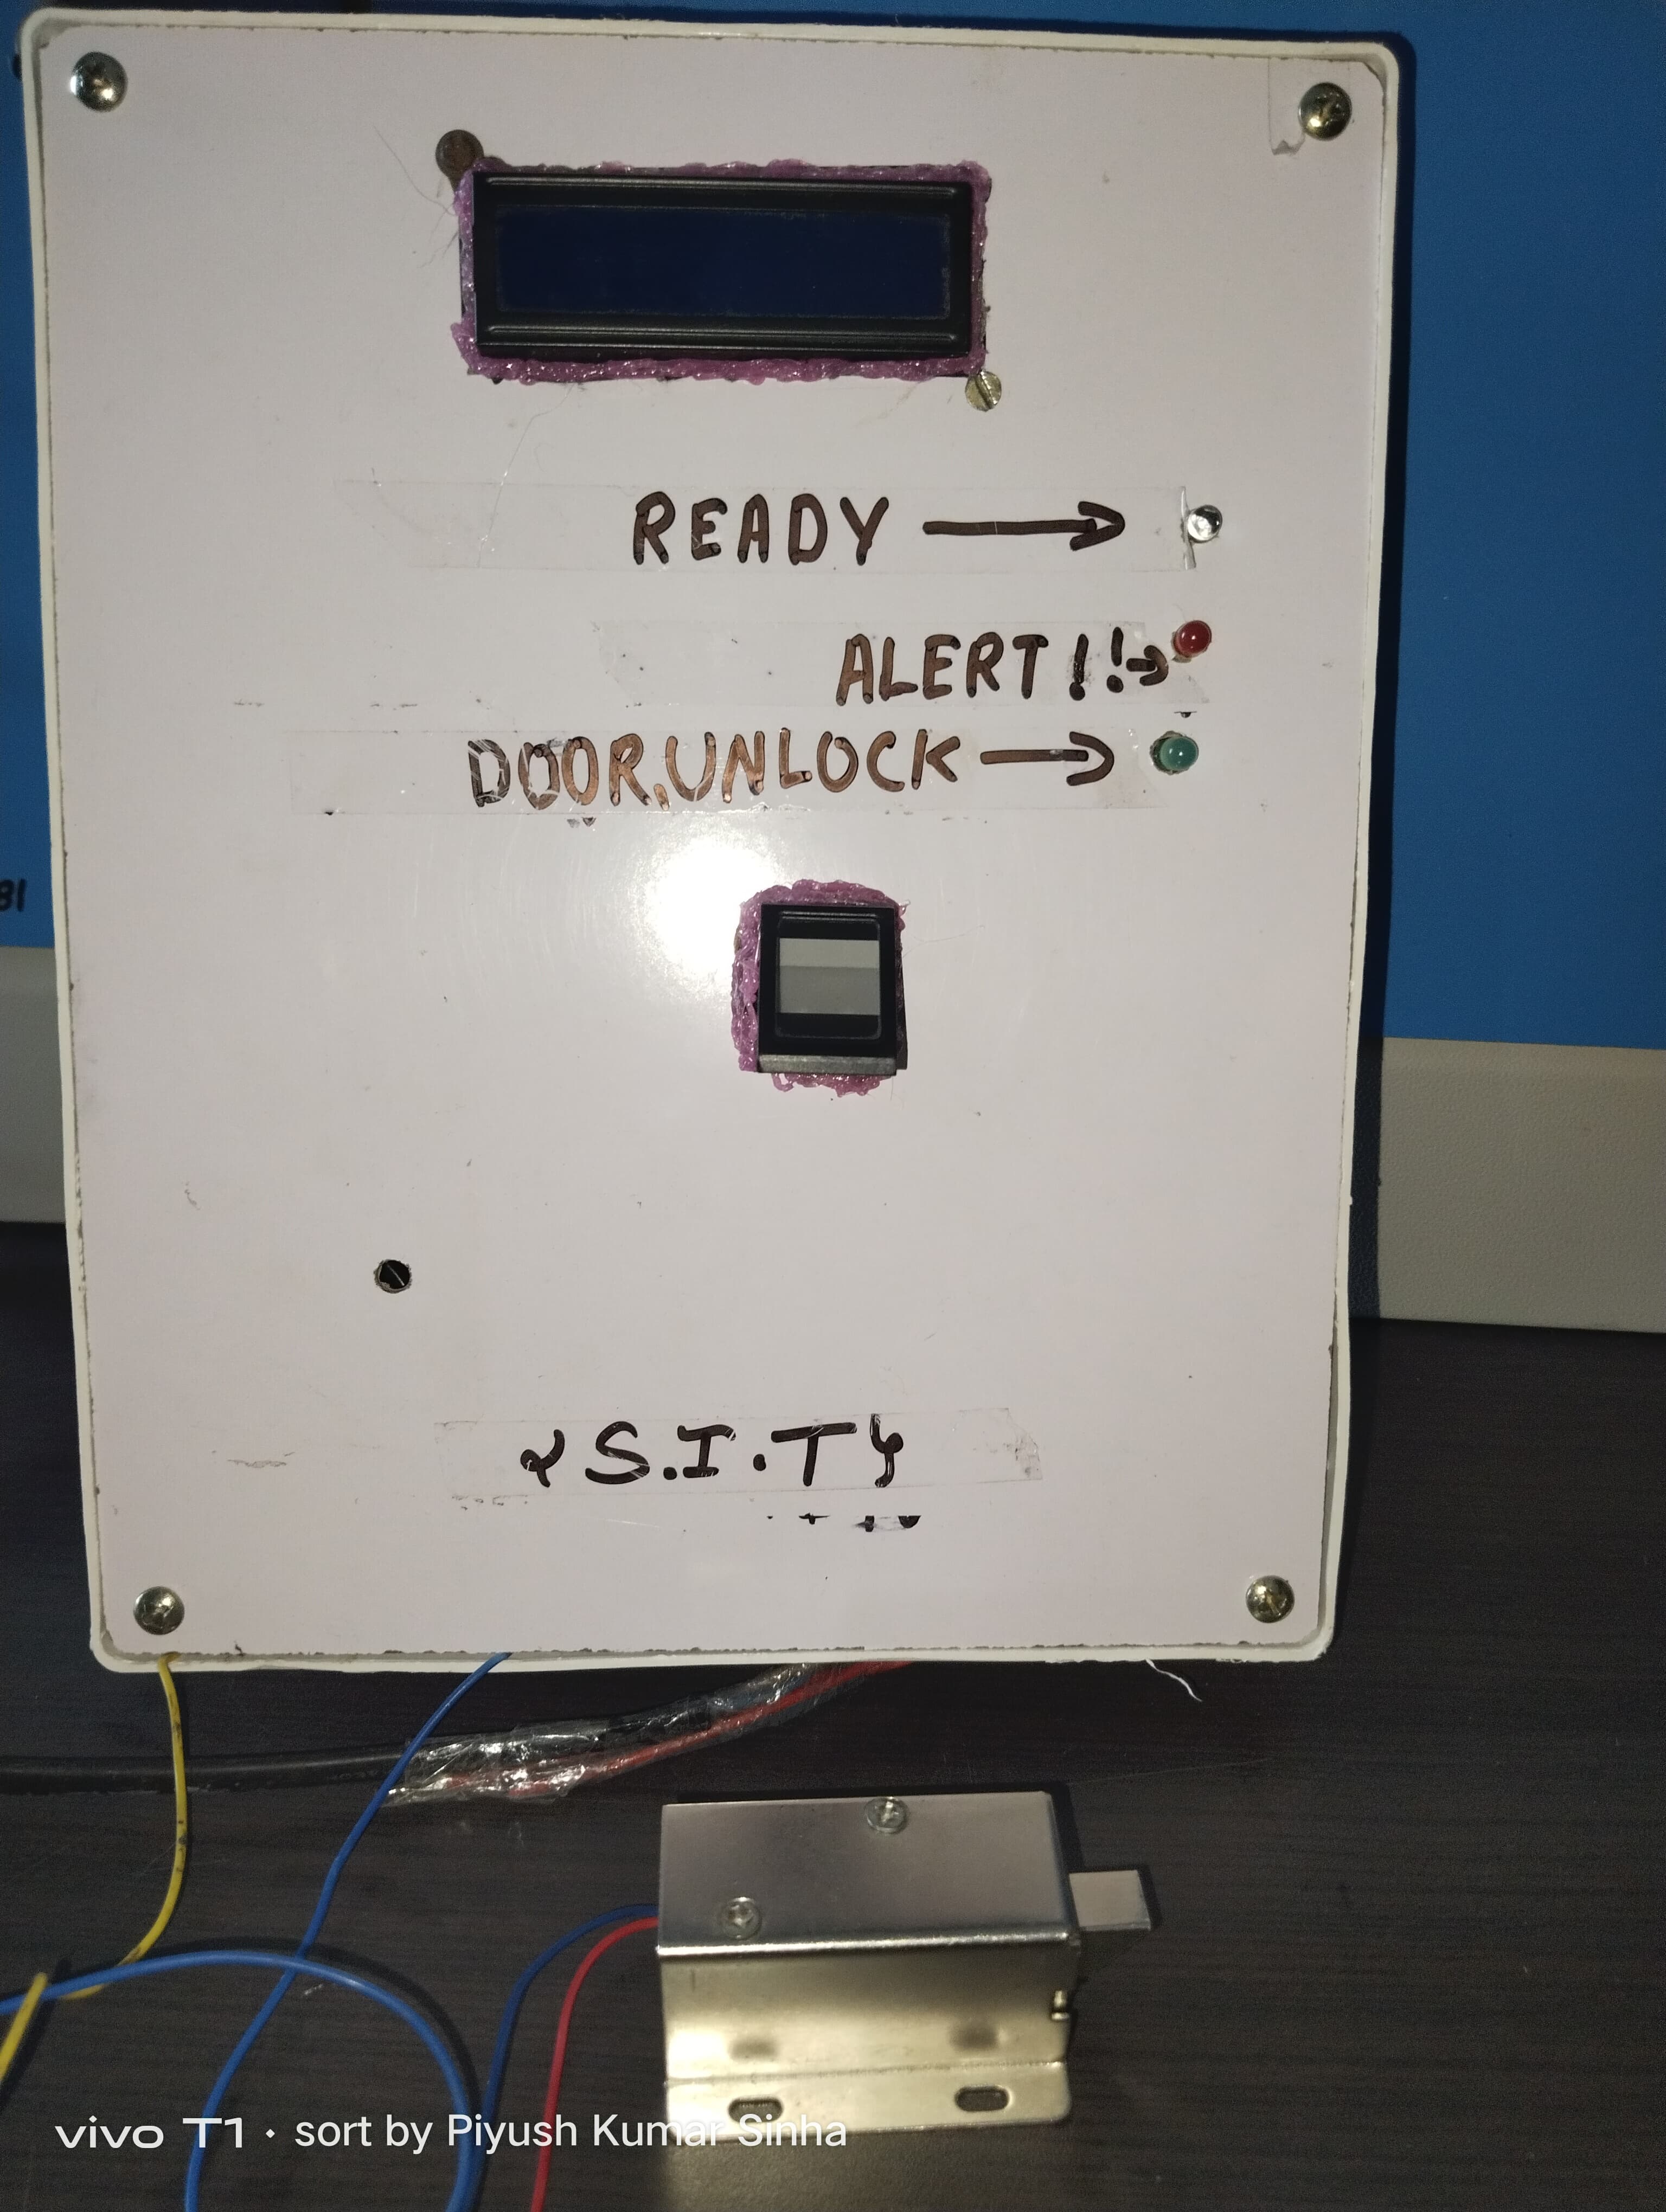 READY →
ALERT!!→
DOOR.UNLOCK →
{S.I.T}
31
vivo T1 • sort by Piyush Kumar Sinha